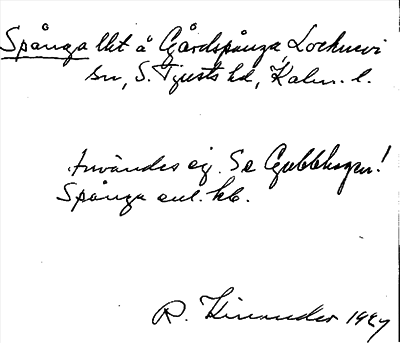 Spånga lht å Gårdspånga, Locknevi
sn, S. Tjusts hd, Kalm. l.
Användes ej. Se Gubbhagen!
Spånga enl. kb.
R. Kinander 1927